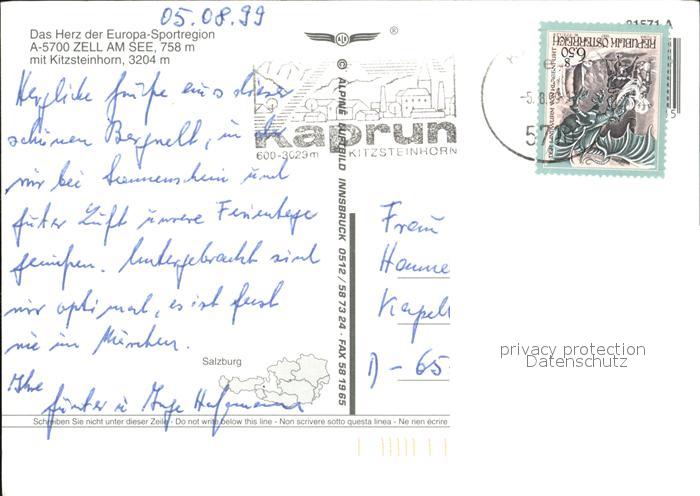 05.08.99
Das Herz der Europa-Sportregion
A-5700 ZELL AM SEE, 758 m
mit Kitzsteinhorn, 3204 m
ALK
®
91571 A
6.50
REPUBLIK ÖSTERREICH
-5.8.
57
Kaprun
600-3029m KITZSTEINHORN
@ ALPINE LUFTBILD INNSBRUCK 0512 / 58 73 24 · FAX 58 19 65
Herzliche Grüße aus dieser
schönen Bergwelt, in der
wir bei Sonnenschein und
guter Luft unsere Ferientage
genießen. Untergebracht sind
wir optimal, es ist fast
wie im Märchen.
Ihre
Günter u Inge
Frau
Hanne
Kapell
D - 65
Salzburg
privacy protection
Datenschutz
Schreiben Sie nicht unter dieser Zeile - Do not write below this line - Non scrivere sotto questa linea - Ne rien écrire